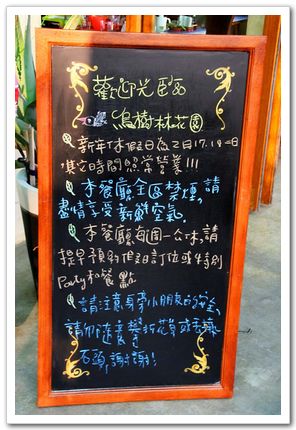 歡迎光臨
烏樹林花園
新年休假日為2月17.18.二日
其它時間照常營業!!!
本餐廳全區禁煙,請
盡情享受新鮮空氣.
本餐廳每周一公休,請
提早預約假日訂位或特別
Party和餐點
請注意身旁小朋友的安全,
請勿隨意攀折花草或丟
石頭,謝謝!